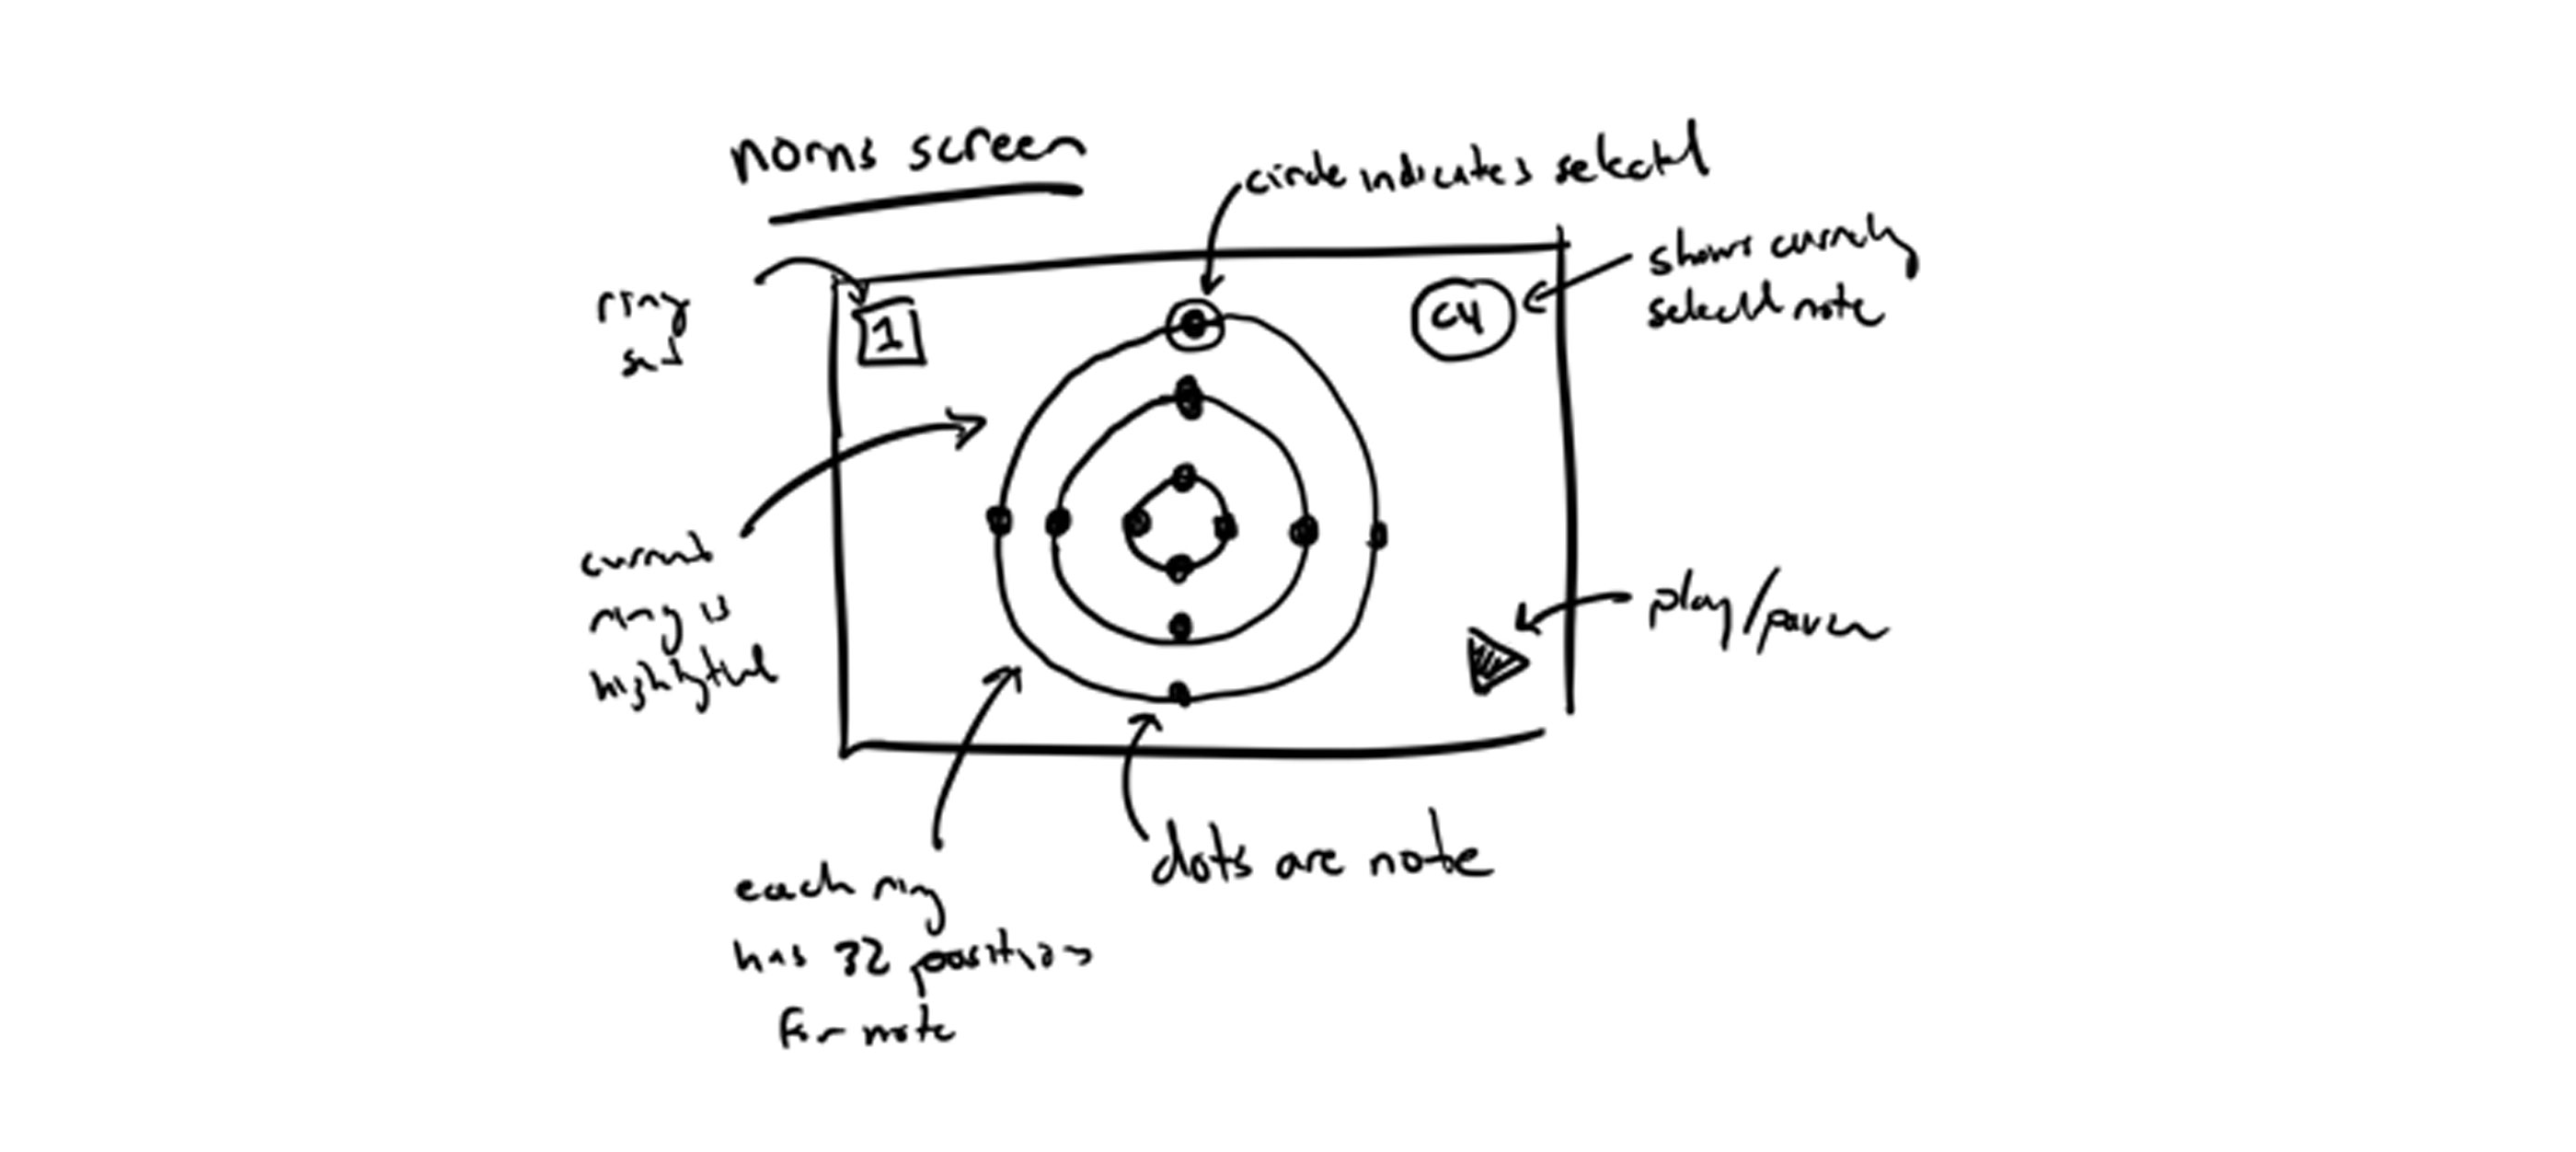 norns screen
circle indicates selected
shows currently
selected note
ring
1
C4
current
ring is
highlighted
play/pause
each ring
has 32 positions
for note
dots are note